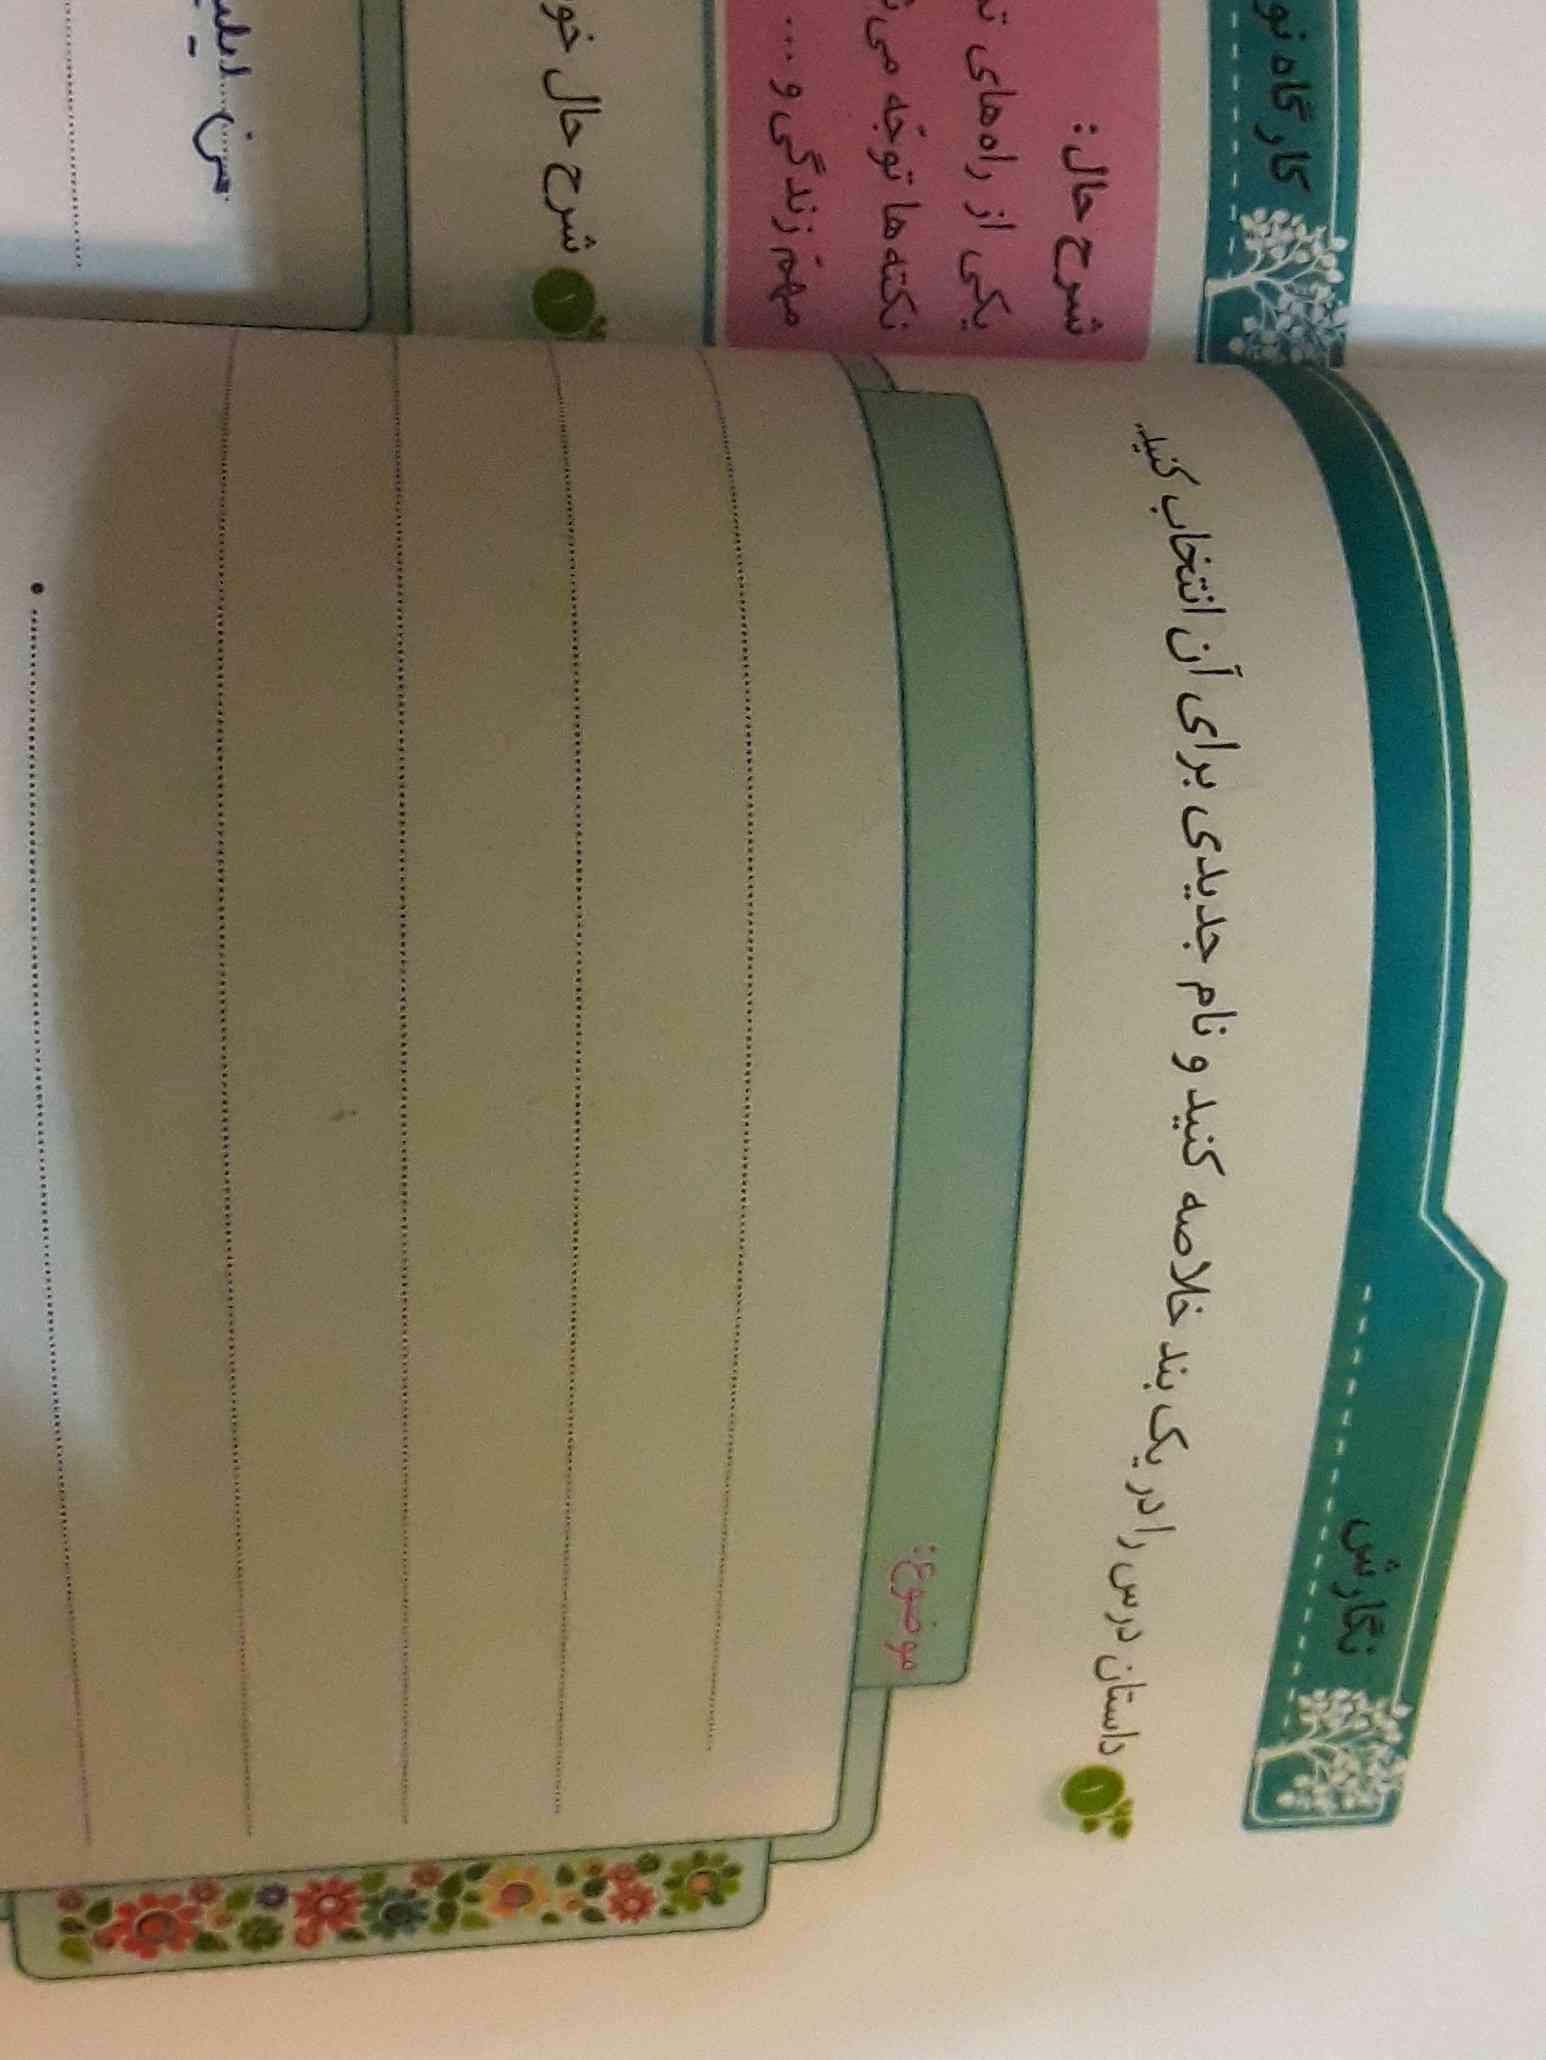 نگارش
داستان درس را در یک بند خلاصه کنید و نام جدیدی برای آن انتخاب کنید.
موضوع:
کارگاه
شرح حال:
یکی از راه‌های
نکته‌ها توجّه
مهمّ زندگی و ...
۱ شرح حال